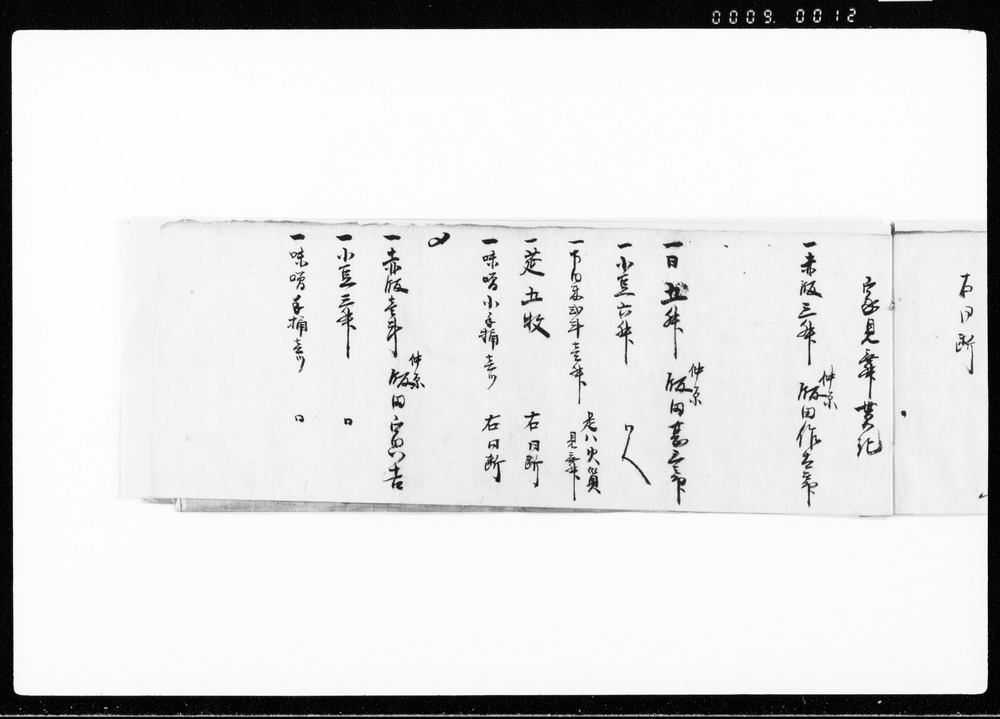 0009. 0012
右同断
家見舞貰記
一赤飯三升 仲宗 飯田作右衛門
一同五升 仲宗 飯田甚三郎
一小豆六升 同人
一白米弐斗壱升 是ハ火災見舞
一莚五枚 右同断
一味噌小手桶壱ツ 右同断
一赤飯壱斗 仲宗 飯田 吉
一小豆三升 同
一味噌手桶壱ツ 同